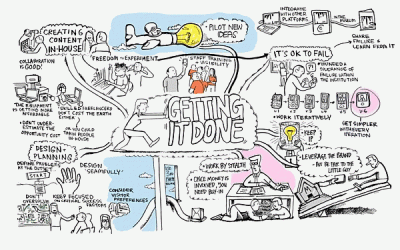 CREATING
CONTENT
IN-HOUSE
COLLABORATION
IS GOOD!
THE EQUIPMENT
IS GETTING MORE
AFFORDABLE
SKILLED FREELANCERS
DON'T COST THE EARTH
EITHER
DON'T UNDER
ESTIMATE THE
OPPORTUNITY COST
OR YOU COULD
TRAIN PEOPLE
IN-HOUSE
FREEDOM to EXPERIMENT
PILOT NEW
IDEAS
STAFF TRAINING
VISIBILITY
INTEGRATE
WITH OTHER
PLATFORMS
SHARE
FAILURE &
LEARN FROM IT
IT'S OK TO FAIL
TOLERANCE OF
FAILURE WITHIN
THE INSTITUTION
WORK ITERATIVELY
GET SIMPLER
WITH EVERY
ITERATION
KEEP
IT
GETTING
IT DONE
DESIGN+
PLANNING
DEFINE PROBLEMS
AT THE OUTSET
DESIGN
DON'T
OVERBUILD
KEEP FOCUSED
ON CRITICAL SUCCESS
FACTORS
CONSIDER
VISITOR
PREFERENCES
WORK BY STEALTH
ONCE MONEY IS
INVOLVED, YOU
NEED BUY-IN
LEVERAGE THE BRAND
BUT BE TRUE TO THE
LITTLE GUY